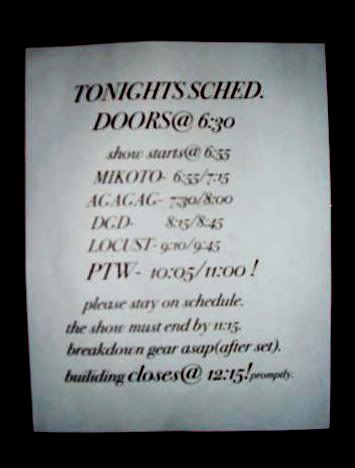 TONIGHTS SCHED.
DOORS@ 6:30
show starts@ 6:55
MIKOTO- 6:55/7:15
AGAGAG- 7:30/8:00
DGD- 8:15/8:45
LOCUST- 9:10/9:45
PTW- 10:05/11:00 !
please stay on schedule.
the show must end by 11:15.
breakdown gear asap(after set).
builiding closes@ 12:15! promptly.